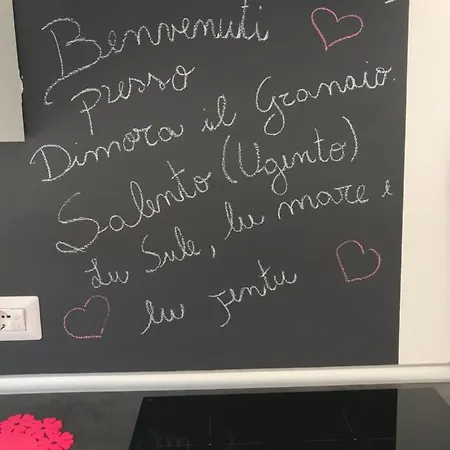 Benvenuti
Presso
Dimora il Granaio.
Salento (Ugento)
Lu Sule, lu mare e
lu jentu